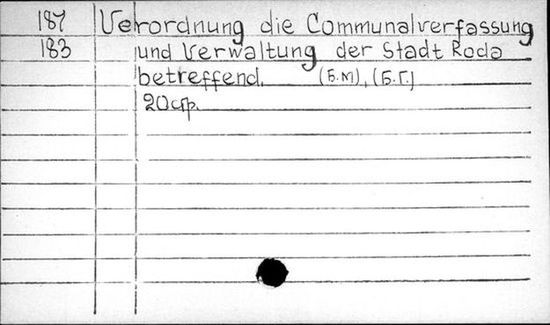 187 Verordnung die Communalverfassung
183 und Verwaltung der Stadt Roda
betreffend. (Б.М), (Б.Г.)
20 стр.